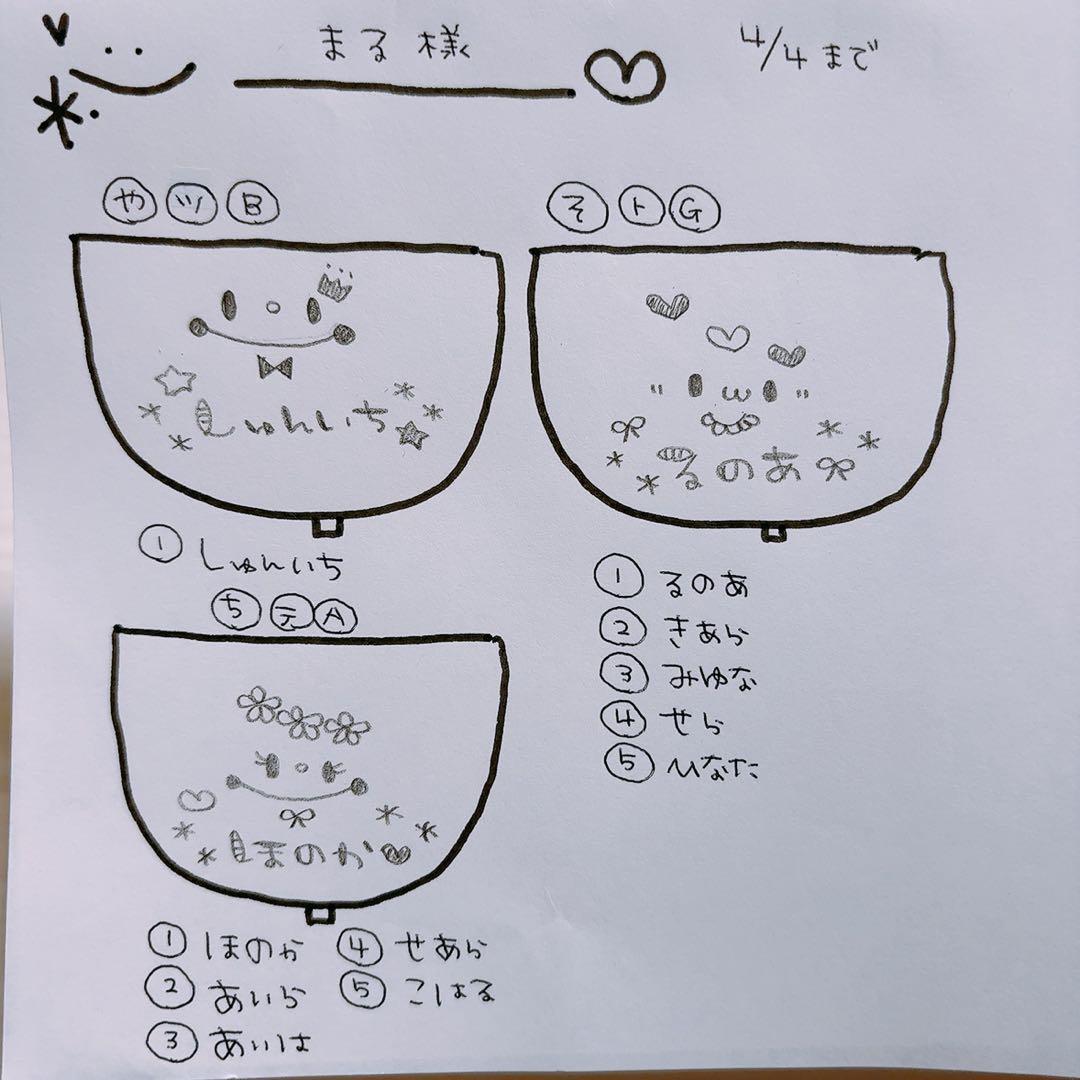 まる様
4/4まで
やツB
しゅんいち
①しゅんいち
そトG
るのあ
①るのあ
②きあら
③みゆな
④せら
⑤ひなた
ちテA
ほのか
①ほのか
②あいら
③あいは
④せあら
⑤こはる